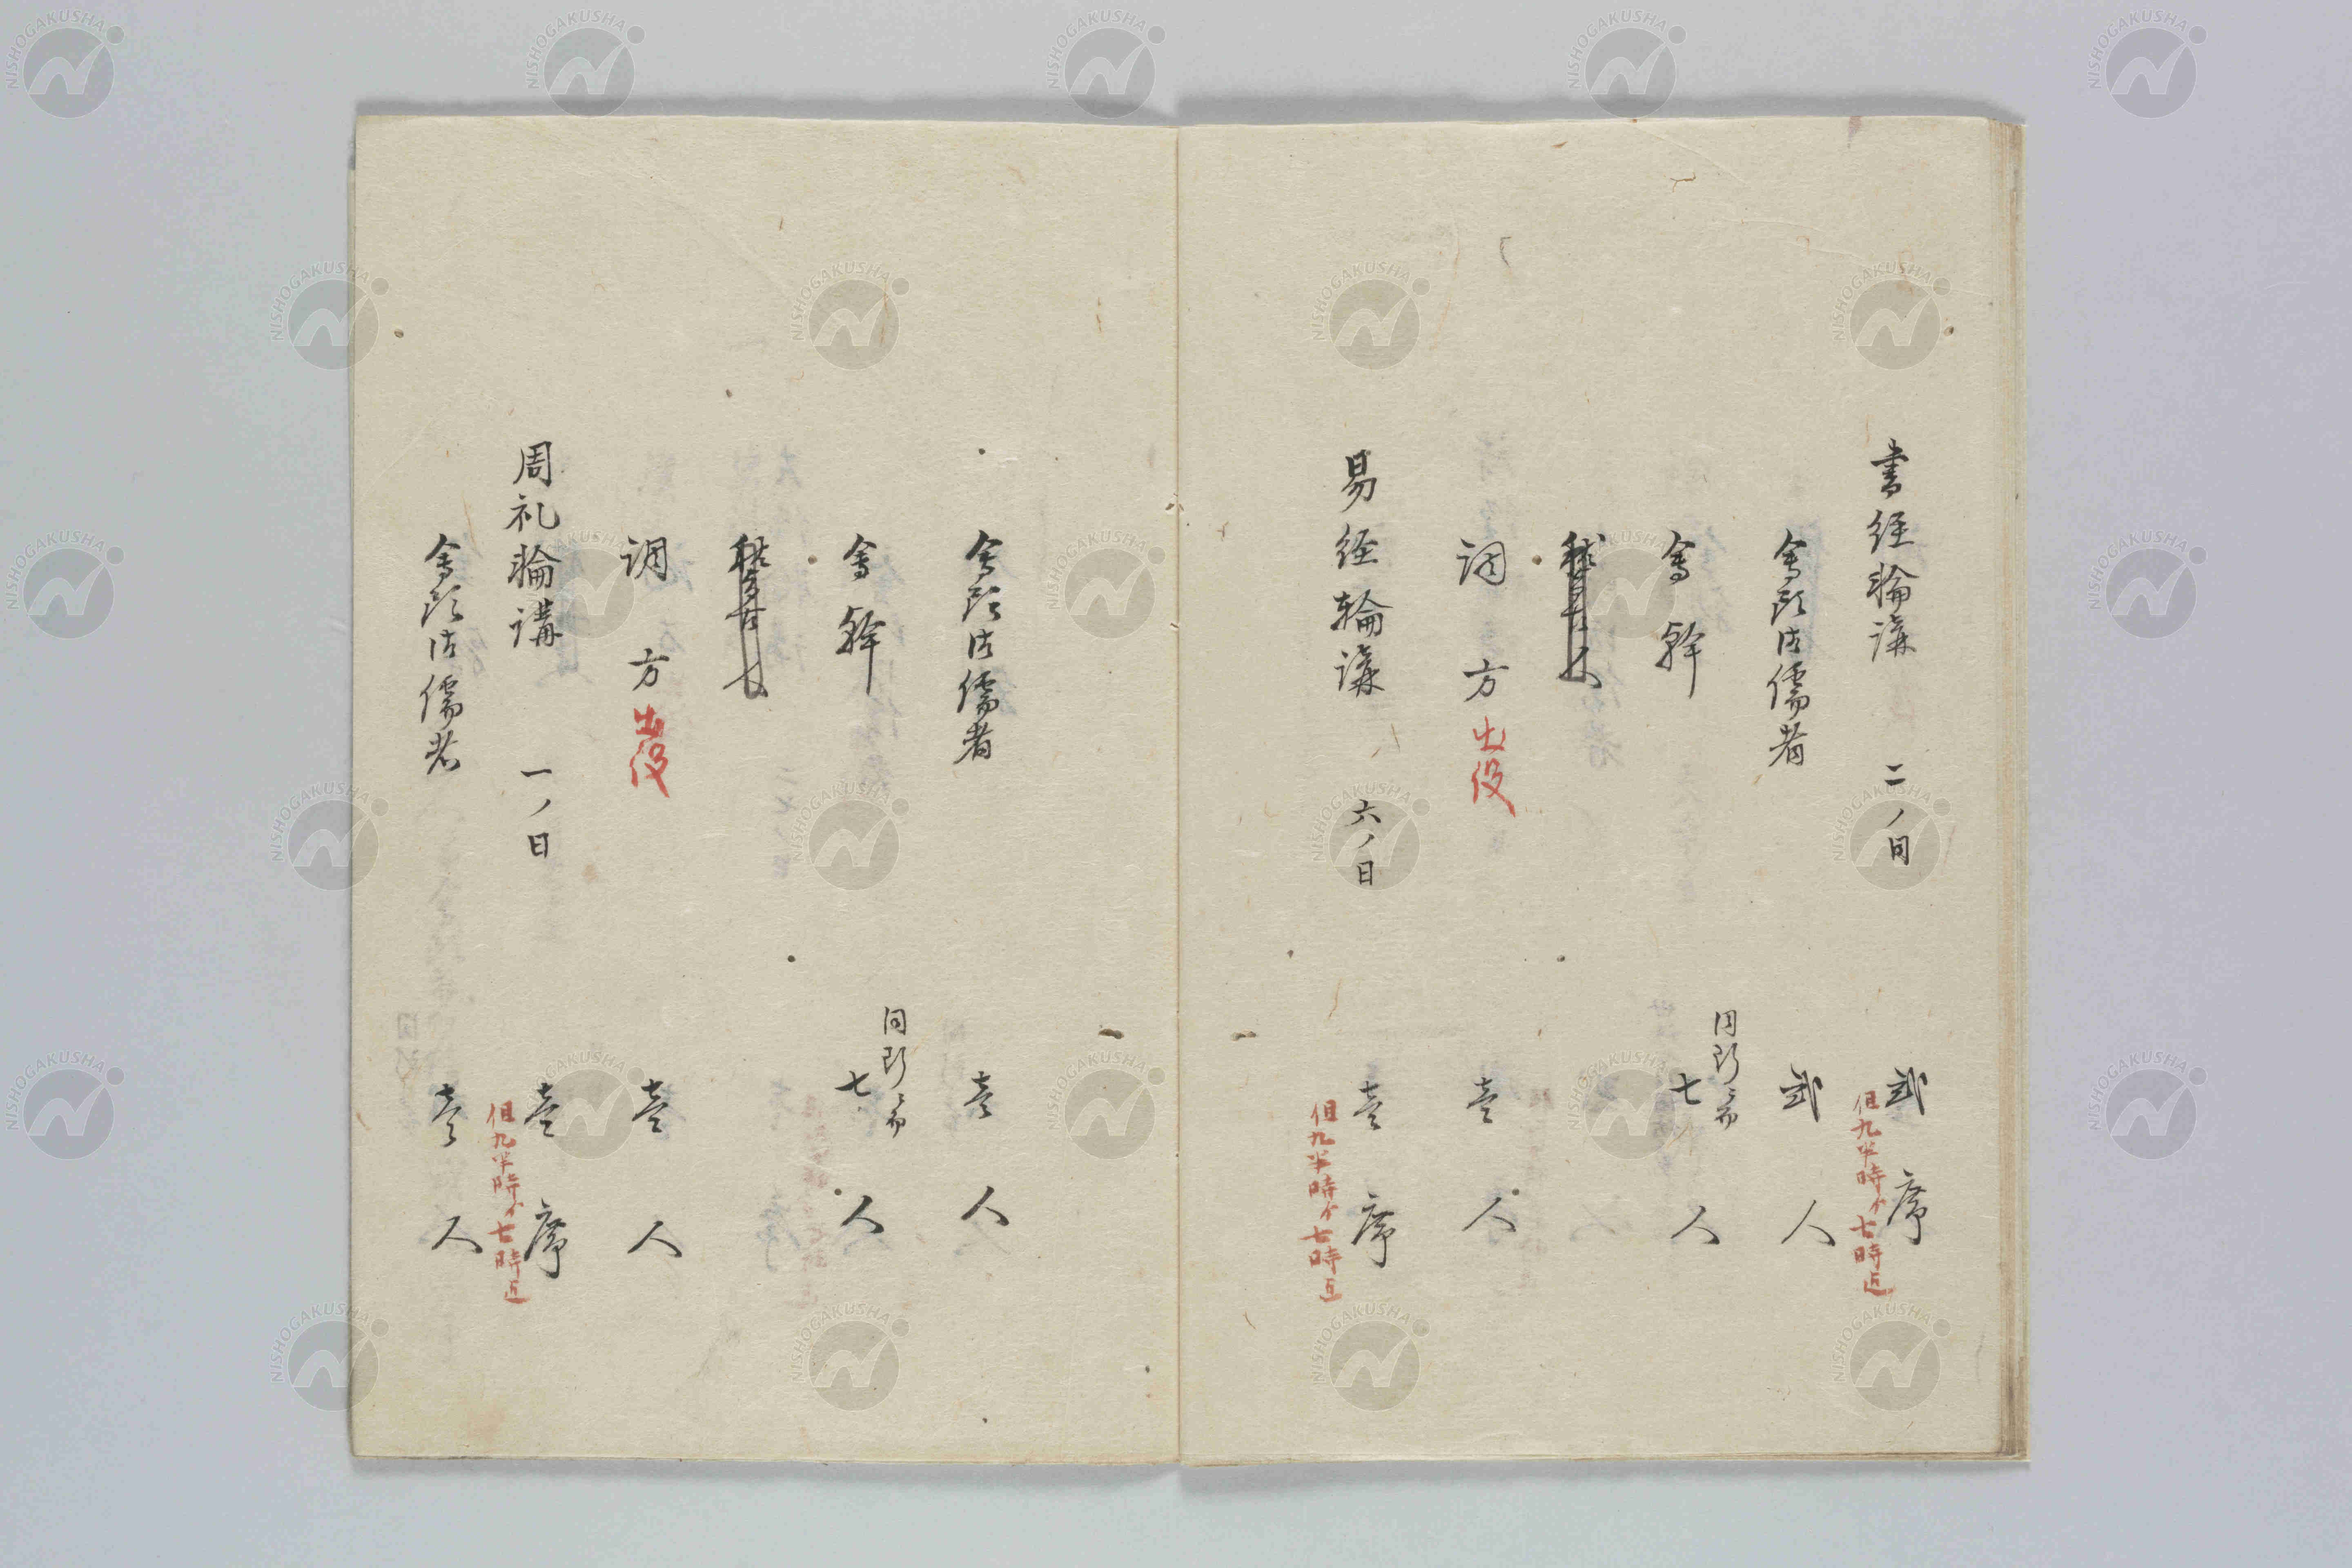 書経輪講 二ノ日 弐席
但九半時ゟ七時迄
会頭御儒者 弐人
会幹 同断ニ而 七人
調方出役 壱人
易経輪講 六ノ日 壱席
但九半時ゟ七時迄
会頭御儒者 壱人
会幹 同断ニ而 七人
調方出役 壱人
周礼輪講 一ノ日 壱席
但九半時ゟ七時迄
会頭御儒者 壱人
NISHOGAKUSHA